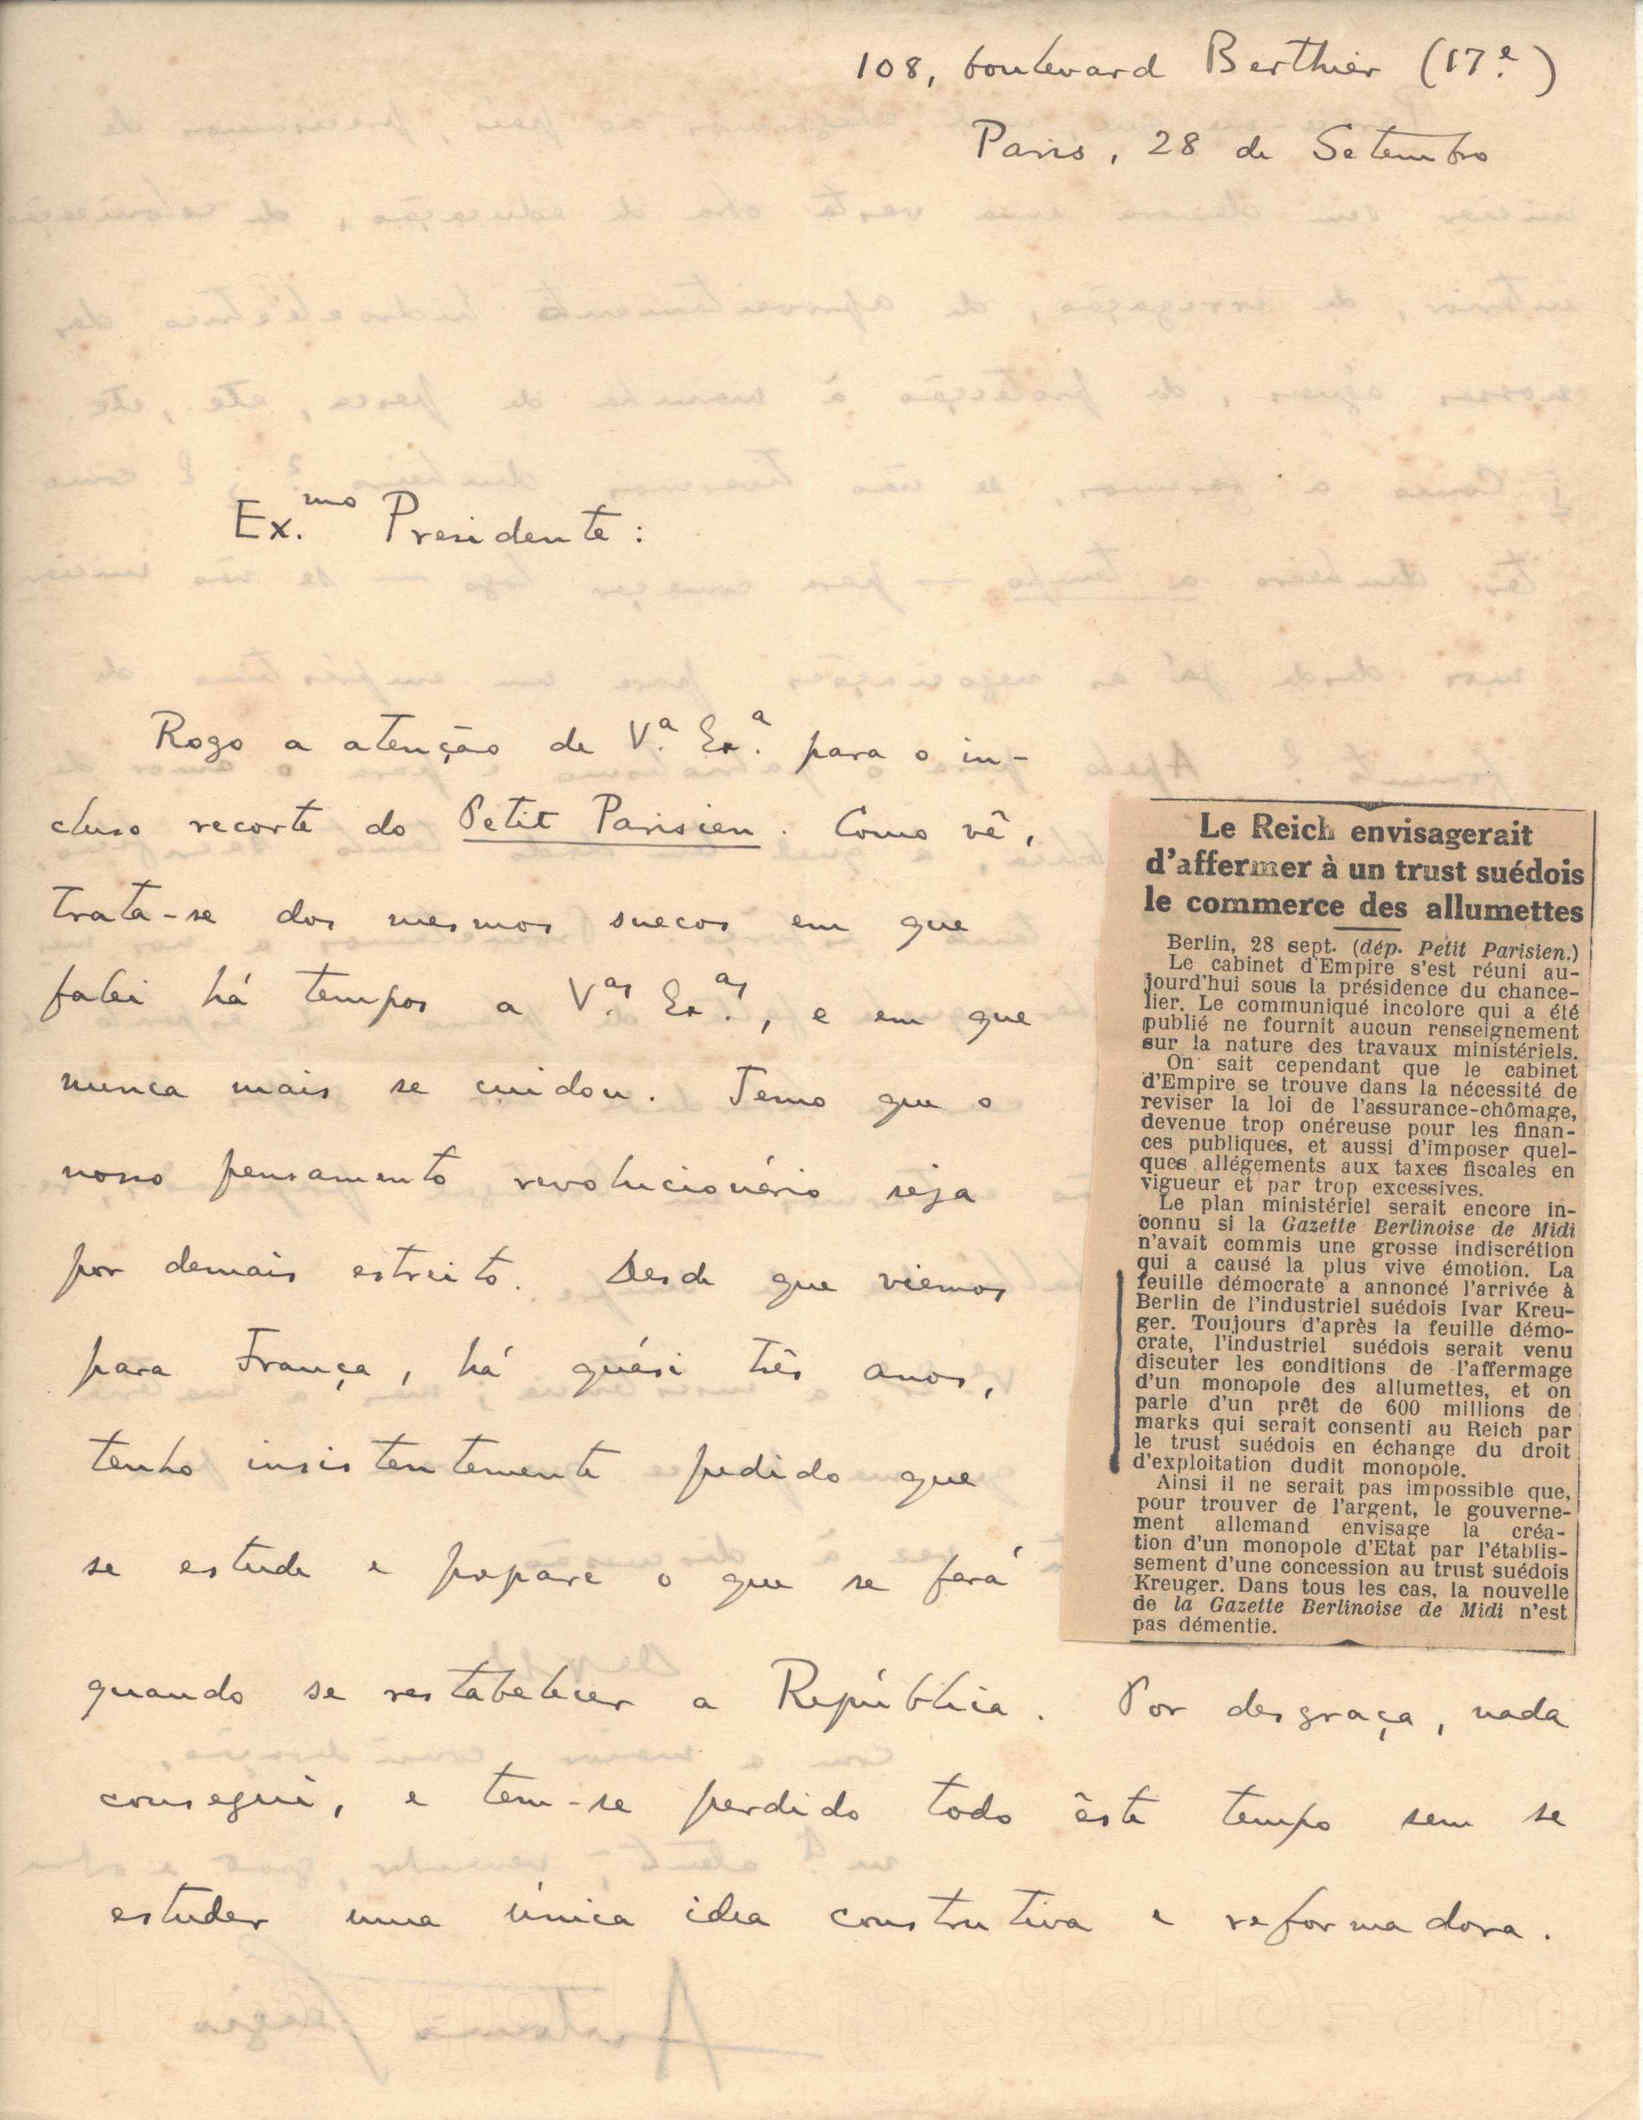 108, boulevard Berthier (17.e)
Paris, 28 de Setembro
Ex.mo Presidente:
Rogo a atenção de V.a Ex.a para o in-
cluso recorte do Petit Parisien. Como vê,
trata-se dos mesmos suecos em que
falei há tempos a V.as Ex.as, e em que
nunca mais se cuidou. Temo que o
nosso pensamento revolucionário seja
por demais estreito. Desde que viemos
para França, há quási três anos,
tenho insistentemente pedido que
se estude e prepare o que se fará
quando se restabelecer a República. Por desgraça, nada
consegui, e tem-se perdido todo êste tempo sem se
estudar uma única idea construtiva e reformadora.
Le Reich envisagerait
d'affermer à un trust suédois
le commerce des allumettes
Berlin, 28 sept. (dép. Petit Parisien.)
Le cabinet d'Empire s'est réuni au-
jourd'hui sous la présidence du chance-
lier. Le communiqué incolore qui a été
publié ne fournit aucun renseignement
sur la nature des travaux ministériels.
On sait cependant que le cabinet
d'Empire se trouve dans la nécessité de
reviser la loi de l'assurance-chômage,
devenue trop onéreuse pour les finan-
ces publiques, et aussi d'imposer quel-
ques allégements aux taxes fiscales en
vigueur et par trop excessives.
Le plan ministériel serait encore in-
connu si la Gazette Berlinoise de Midi
n'avait commis une grosse indiscrétion
qui a causé la plus vive émotion. La
feuille démocrate a annoncé l'arrivée à
Berlin de l'industriel suédois Ivar Kreu-
ger. Toujours d'après la feuille démo-
crate, l'industriel suédois serait venu
discuter les conditions de l'affermage
d'un monopole des allumettes, et on
parle d'un prêt de 600 millions de
marks qui serait consenti au Reich par
le trust suédois en échange du droit
d'exploitation dudit monopole.
Ainsi il ne serait pas impossible que,
pour trouver de l'argent, le gouverne-
ment allemand envisage la créa-
tion d'un monopole d'Etat par l'établis-
sement d'une concession au trust suédois
Kreuger. Dans tous les cas, la nouvelle
de la Gazette Berlinoise de Midi n'est
pas démentie.